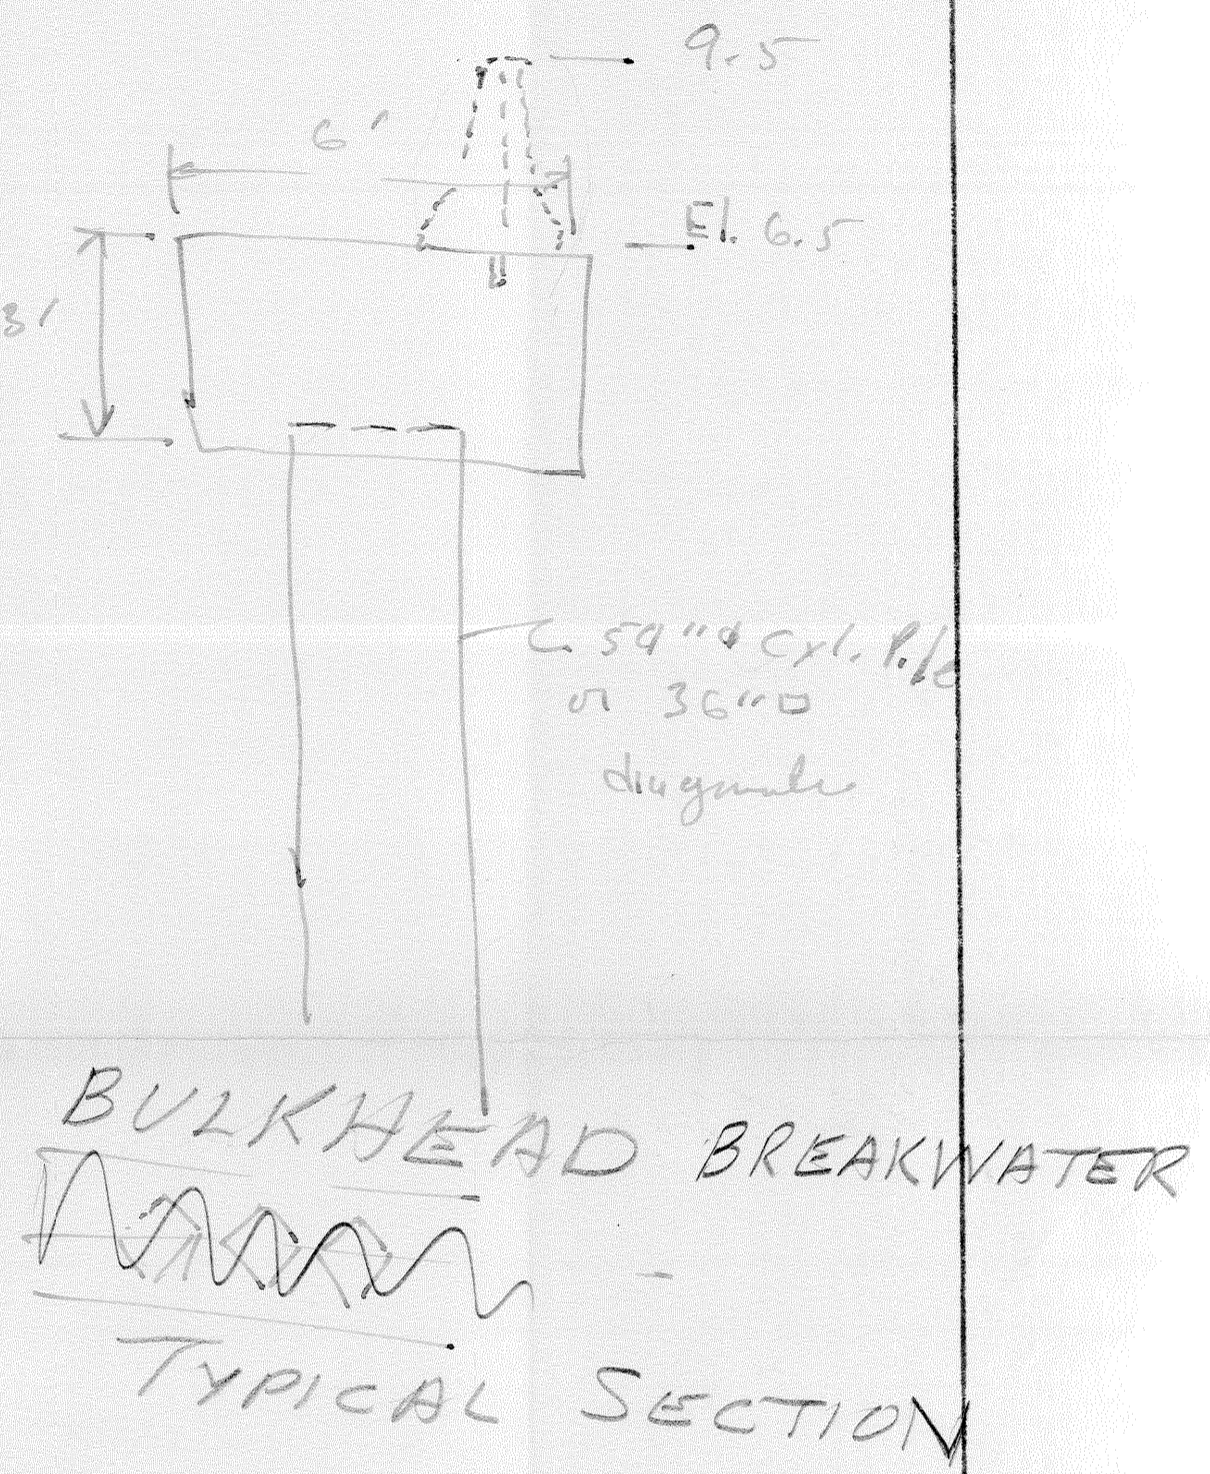 9.5
6'
El. 6.5
3'
54"φ Cyl. Pile
or 36"□
BULKHEAD BREAKWATER
TYPICAL SECTION